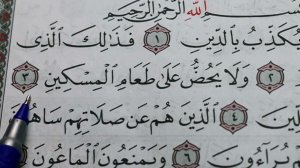 ـسْمِ ٱللَّهِ ٱلرَّحْمَٰنِ ٱلرَّحِيمِ
يُكَذِّبُ بِٱلدِّينِ ١ فَذَٰلِكَ ٱلَّذِى
٢ وَلَا يَحُضُّ عَلَىٰ طَعَامِ ٱلْمِسْكِينِ ٣
٤ ٱلَّذِينَ هُمْ عَن صَلَاتِهِمْ سَاهُ
يُرَآءُونَ ٦ وَيَمْنَعُونَ ٱلْمَاعُونَ